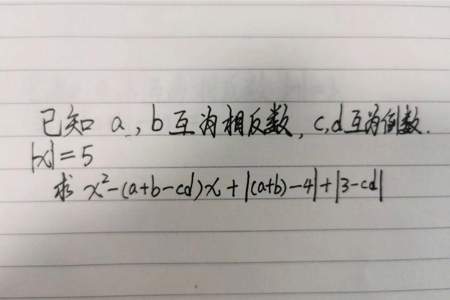 已知 a, b互为相反数, c,d互为倒数.
|x|=5
求 x²-(a+b-cd)x+|(a+b)-4|+|3-cd|